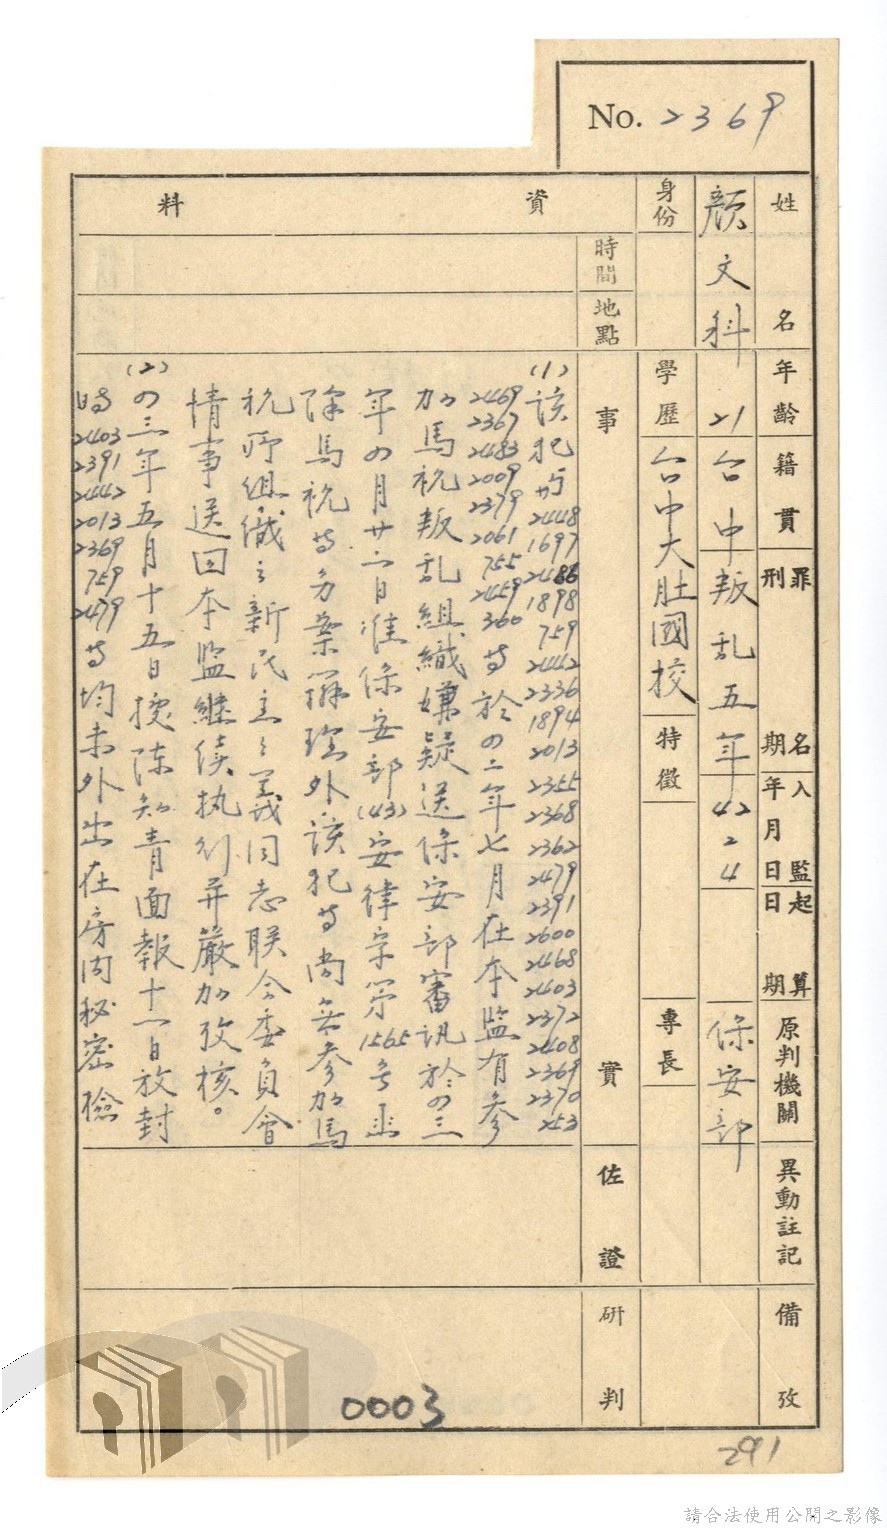 No. 2369
姓名
顏文科
年齡
21
籍貫
台中
罪名刑期
叛乱五年
入監年月日
42 2 4
起算日期
原判機關
保安部
異動註記
備攷
身份
學歷
台中大肚國校
特徵
專長
資料
時間
地點
事實
(1)該犯与2448 1697 2486 1898 759 2442 2336 1894 2013 2355 2368 2362 2479 2391 2600 2468 2403 2372 2408 2369 2370 253
2469 2367 2483 2009 2379 2061 755 2459 360等於四二年七月在本監有參
加馬祝叛乱組織嫌疑送保安部審訊於四三
年四月廿六日准保安部(43)安律字第1565号函
除馬祝等另案辦理外該犯等尚無參加馬
祝所組織之新民主主義同志联合委員會
情事送回本監継续执行并嚴加攷核。
(2)四三年五月十五日據陈知青面報十一日放封
時2403 2391 2442 2013 2369 759 2479等均未外出在房内秘密檢
佐證
研判
0003
291
請合法使用公開之影像